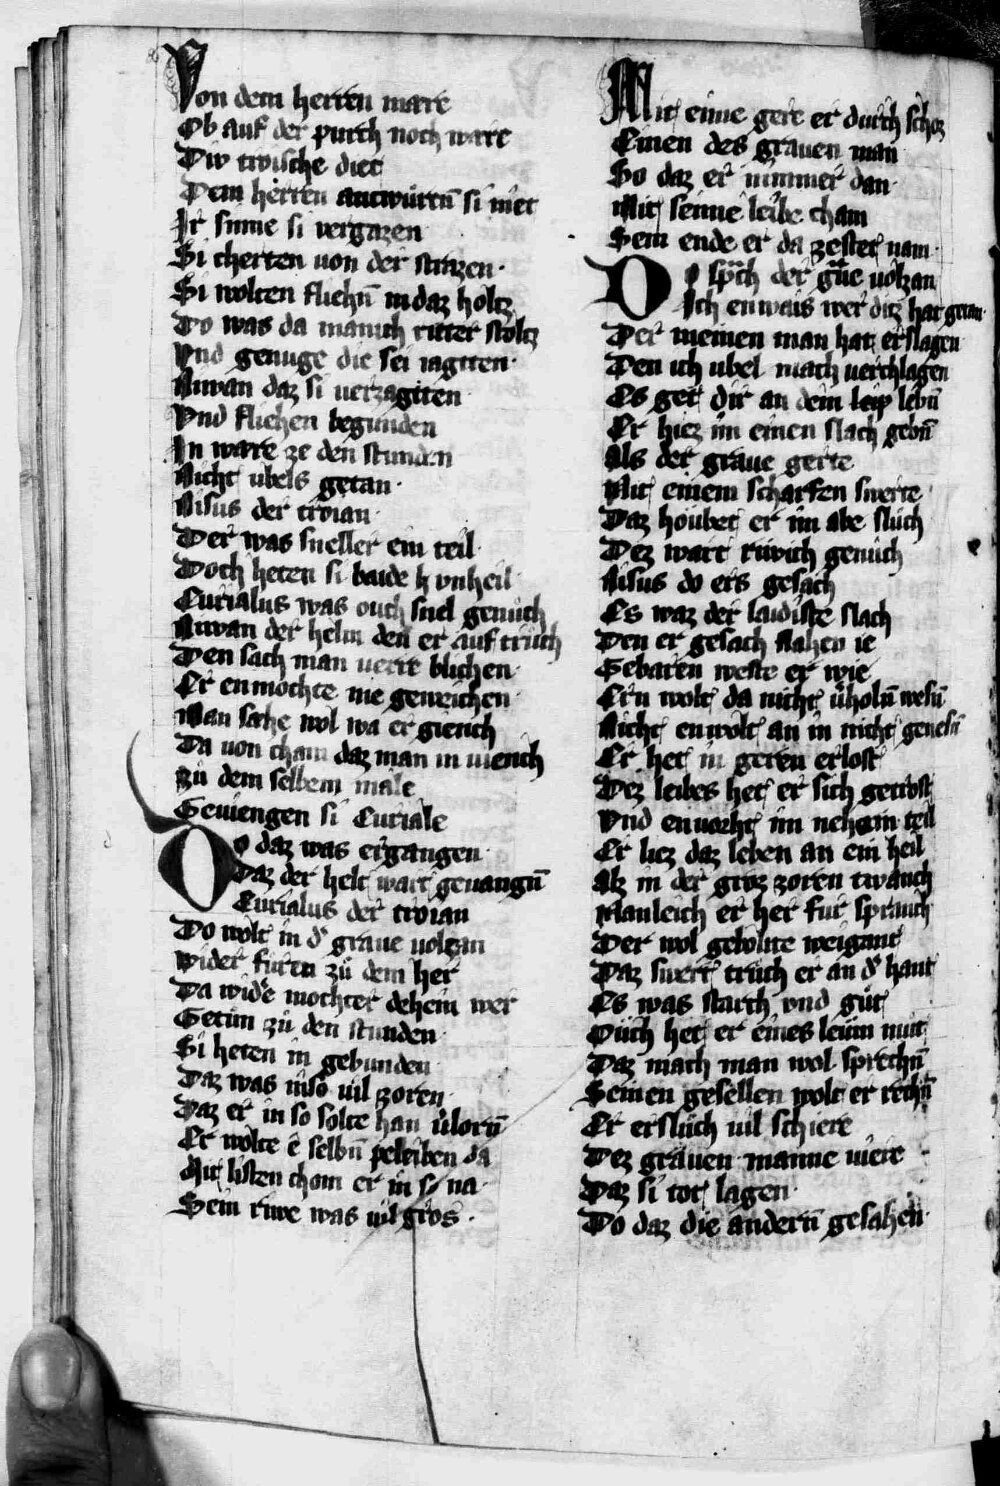 Von dem herren mare
Ob auf der purch noch ware
Diw twische diet
Dem herren antwurtn̄ si niet
Ir sinne si vergazen
Si cherten uon der strazen·
Si wolten fliehn̄ in daz holtz
Do was da manich ritter stoltz
Vnd genuge die sei iagtten·
Niwan daz si uerzagtten
Vnd fliehen begunden
In ware ze den stunden
Nicht ubels getan·
Nisus der troian·
Der was sneller ein teil
Doch heten si baide vnheil·
Curialus was ouch snel genuch
Niwan der helm den er auf truch
Den sach man uerre blichen·
Er en mochte nie geweichen·
Man sahe wol wa er giench
Da uon cham daz man in uiench
zu dem selbem male
Geuiengen si Curiale
Do daz was ergangen·
Daz der helt wart geuangn̄
Curialus der troian
Do wolt in d' graue uolczan
wider furen zu dem her
Da wider mochter dehein wer
Getun zu den stunden·
Si heten in gebunden
Daz was niso uil zoren·
Daz er in so solte han ůlorn̄
Er wolte e selbn̄ peleiben da
Mit listen chom er in so na·
Sein riwe was uil gros·
Mit eime gere er durch schoz
Einen des grauen man
So daz er nimmer dan·
Mit seime leibe cham
Sein ende er da zestet nam·
Do sprach der graue uolzan
Ich en wais wer ditz hat getan·
Der meinen man hat erslagen·
Den ich ubel mach uerchlagen
Es get dir an dein leip lebn̄
Er hiez im einen slach gebn̄
Als der graue gerte
Mit einem scharfen swerte·
Daz houbet er im abe sluch
Dez wart riwich genuch
Nisus do ers gesach
Es waz der laidiste slach
Den er gesach slahen ie
Gebaren weste er wie
Ern wolt da nicht ůholn̄ wesn̄
Nicht en wolt an in nicht genesn̄
Er het in geren erlost
Dez leibes het er sich getrost
Vnd en uorht im nehain teil
Er liez daz leben an ein heil
Alz in der groz zoren twanch
Manleich er her fur spranch
Der wol gebolnte weigant
Daz swert truch er an d' hant
Es was starch vnd gut
Ouch het er eines leun mut
Daz mach man wol sprechn̄
Seinen gesellen wolt er rechn̄
Er ersluch uil schiere
Dez grauen manne uiere
Daz si tot lagen·
Do daz die andern̄ gesahen·